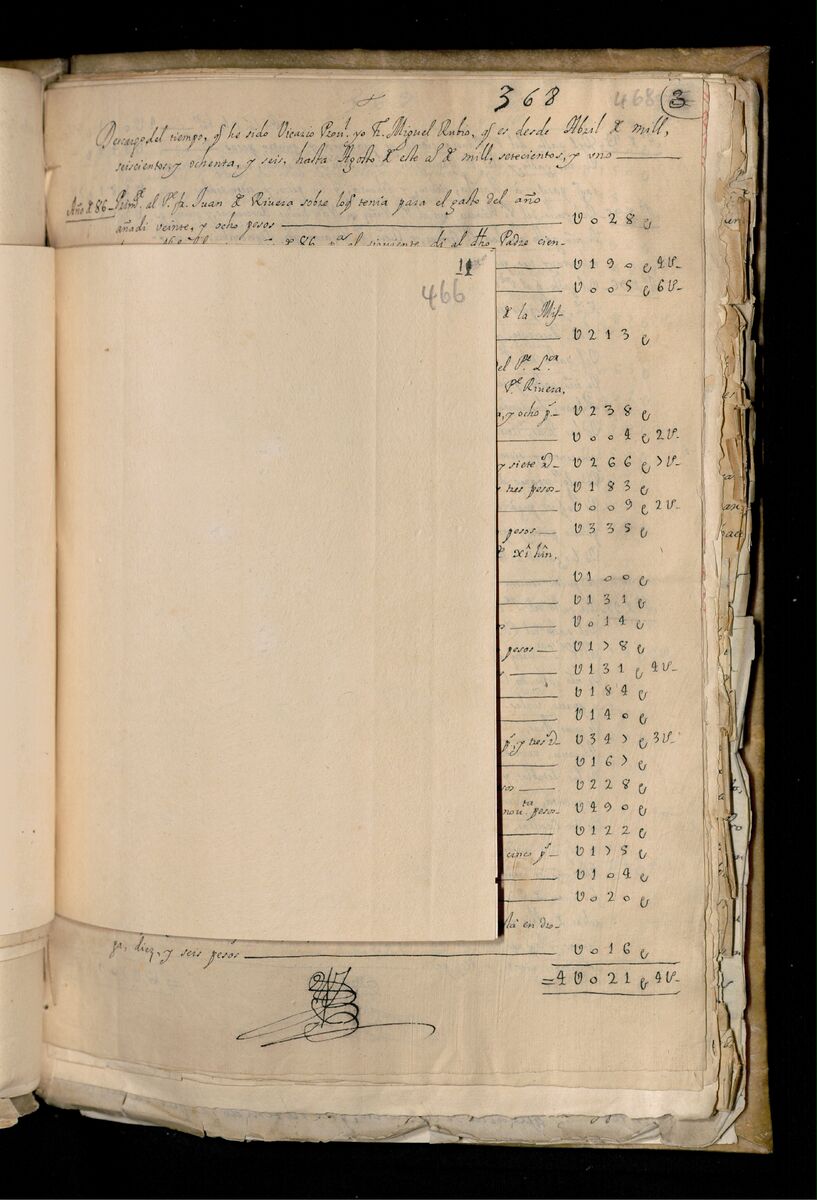 368
468
3
Descargo del tiempo, q̃ he sido Vicario Prou.ˡ yo F. Miguel Rubio, q̃ es desde Abril de mill,
seiscientos, y ochenta, y seis, hasta Agosto de este as de mill, setecientos, y uno
Año de 86 - al P.ᵉ fr. Juan de Rivera sobre lo q̃ tenia para el gasto del año
añadi veinte, y ocho pesos U 0 2 8 e
de 86 al siguiente di al dho Padre cien-
11
466
U 1 9 0 e 4 U-
U 0 0 5 e 6 U-
de la Miss-
U 2 1 3 e
el P.ᵉ L.ᵒʳ
P.ᵉ Rivera,
a, y ocho p.ˢ U 2 3 8 e
U 0 0 4 e 2 U-
y siete U 2 6 6 e 7 U-
y tres pesos- U 1 8 3 e
U 0 0 9 e 2 U-
pesos- U 3 3 5 e
U 1 0 0 e
U 1 3 1 e
U 0 1 4 e
pesos- U 1 7 8 e
U 1 3 1 e 4 U-
U 1 8 4 e
U 1 4 0 e
p.ˢ, y tres U 3 4 7 e 3 U-
U 1 6 7 e
sos U 2 2 8 e
nov.ᵗᵃ pesos- U 4 9 0 e
U 1 2 2 e
cinco p.ˢ U 1 7 5 e
U 1 0 4 e
U 0 2 0 e
sta en dro-
ga, diez, y seis pesos U 0 1 6 e
= 4 U 0 2 1 e 4 U-